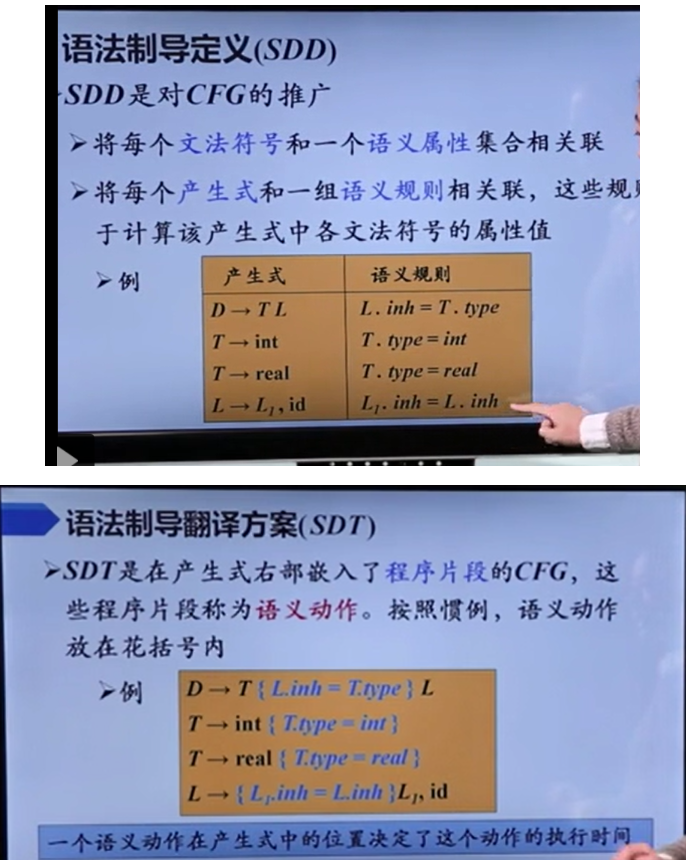 语法制导定义(SDD)
SDD是对CFG的推广
➢将每个文法符号和一个语义属性集合相关联
➢将每个产生式和一组语义规则相关联，这些规
于计算该产生式中各文法符号的属性值
➢例
产生式 语义规则
D → T L L. inh = T. type
T → int T. type = int
T → real T. type = real
L → L1, id L1. inh = L. inh
语法制导翻译方案(SDT)
➢SDT是在产生式右部嵌入了程序片段的CFG，这
些程序片段称为语义动作。按照惯例，语义动作
放在花括号内
➢例
D → T { L.inh = T.type } L
T → int { T.type = int }
T → real { T.type = real }
L → { L1.inh = L.inh }L1, id
一个语义动作在产生式中的位置决定了这个动作的执行时间